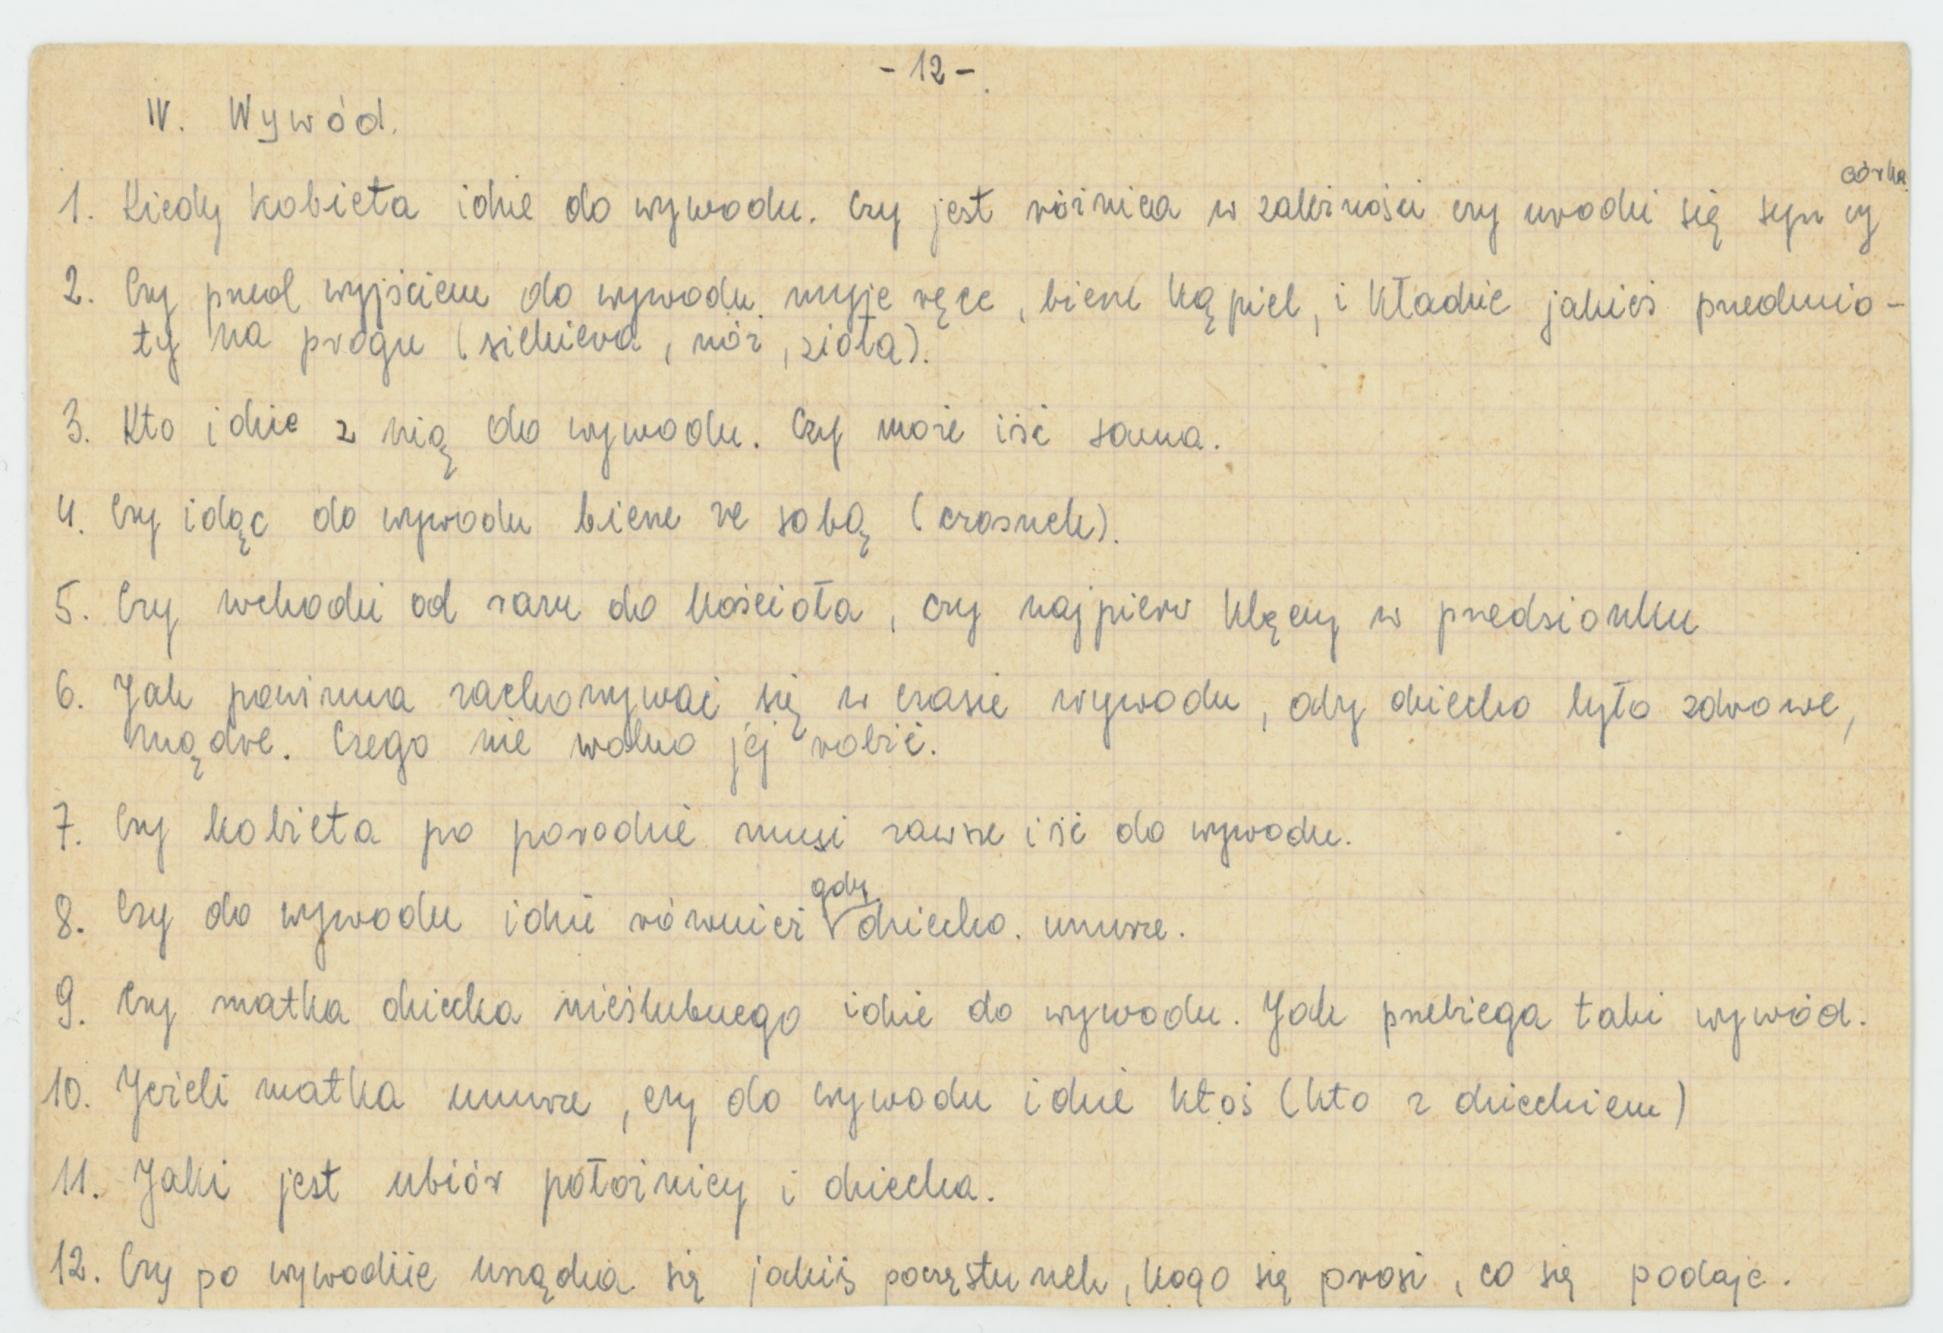 - 12 -
IV. Wywód.
1. Kiedy kobieta idzie do wywodu. Czy jest różnica w zależności czy urodzi się syn czy córka
2. Czy przed wyjściem do wywodu myje ręce, bierze kąpiel, i kładzie jakieś przedmio-
ty na progu (siekiera, nóż, zioła).
3. Kto idzie z nią do wywodu. Czy może iść sama.
4. Czy idąc do wywodu bierze ze sobą (czosnek).
5. Czy wchodzi od razu do kościoła, czy najpierw klęczy w przedsionku
6. Jak powinna zachowywać się w czasie wywodu, ady dziecko było zdrowe,
mądre. Czego nie wolno jej robić.
7. Czy kobieta po porodzie musi zawsze iść do wywodu.
8. Czy do wywodu idzie również gdy dziecko. umrze.
9. Czy matka dziecka nieślubnego idzie do wywodu. Jak przebiega taki wywód.
10. Jeżeli matka umrze, czy do wywodu idzie ktoś (kto z dzieckiem)
11. Jaki jest ubiór położnicy i dziecka.
12. Czy po wywodzie urządza się jakiś poczęstunek, kogo się prosi, co się podaje.